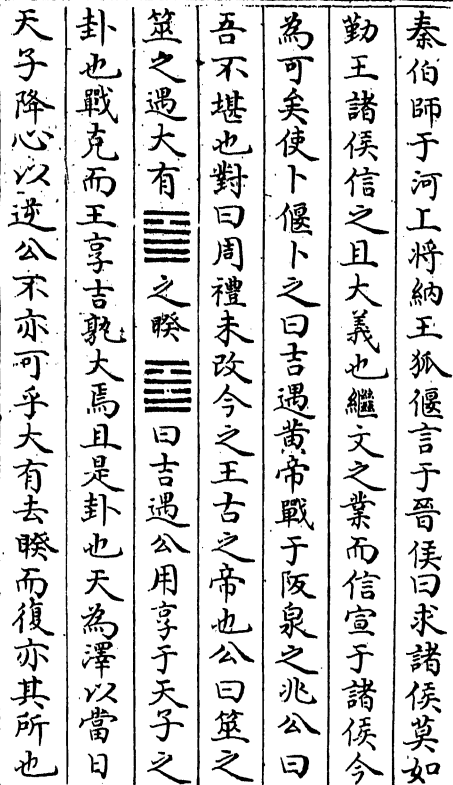 秦伯師于河上将納王狐偃言于晉侯曰求諸侯莫如
勤王諸侯信之且大義也繼文之業而信宣于諸侯今
為可矣使卜偃卜之曰吉遇黄帝戰于阪泉之兆公曰
吾不堪也對曰周禮未改今之王古之帝也公曰筮之
筮之遇大有䷍之睽䷥曰吉遇公用享于天子之
卦也戰克而王享吉孰大焉且是卦也天為澤以當日
天子降心以逆公不亦可乎大有去睽而復亦其所也